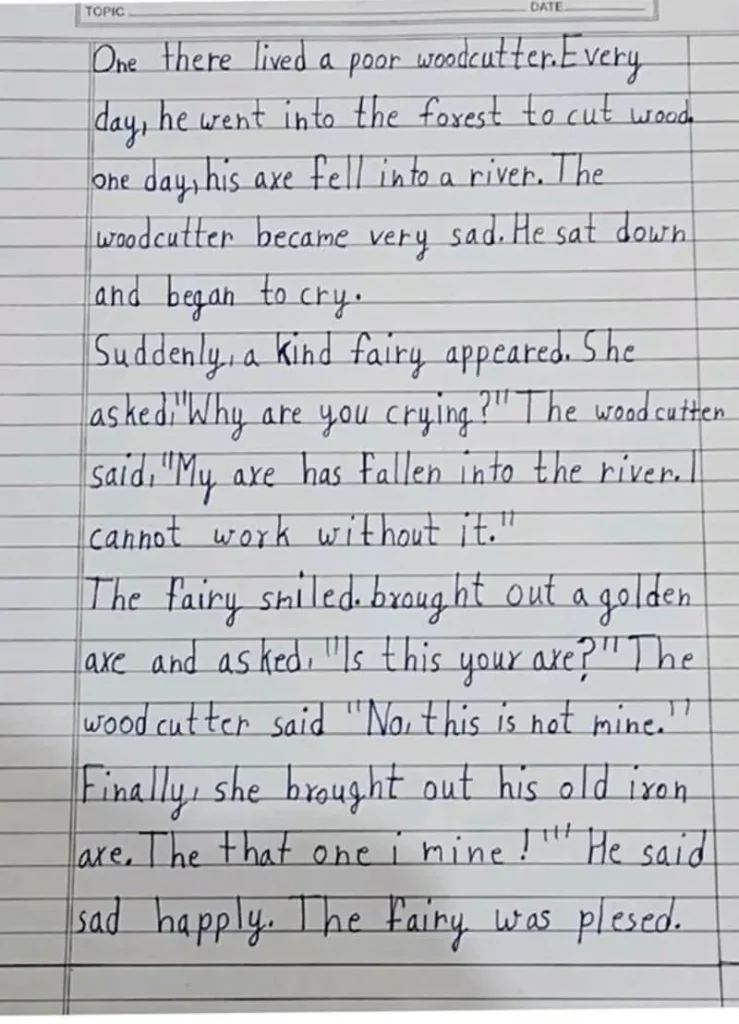 TOPIC DATE
One there lived a poor woodcutter. Every
day, he went into the forest to cut wood.
one day, his axe fell into a river. The
woodcutter became very sad. He sat down
and began to cry.
Suddenly, a kind fairy appeared. She
asked, "Why are you crying?" The woodcutten
said, "My axe has fallen into the river. I
cannot work without it."
The fairy sniled. brought out a golden
axe and asked, "Is this your axe?" The
woodcutter said "No, this is not mine."
Finally, she brought out his old iron
axe. The that one i mine!"" He said
sad happly. The fairy was plesed.